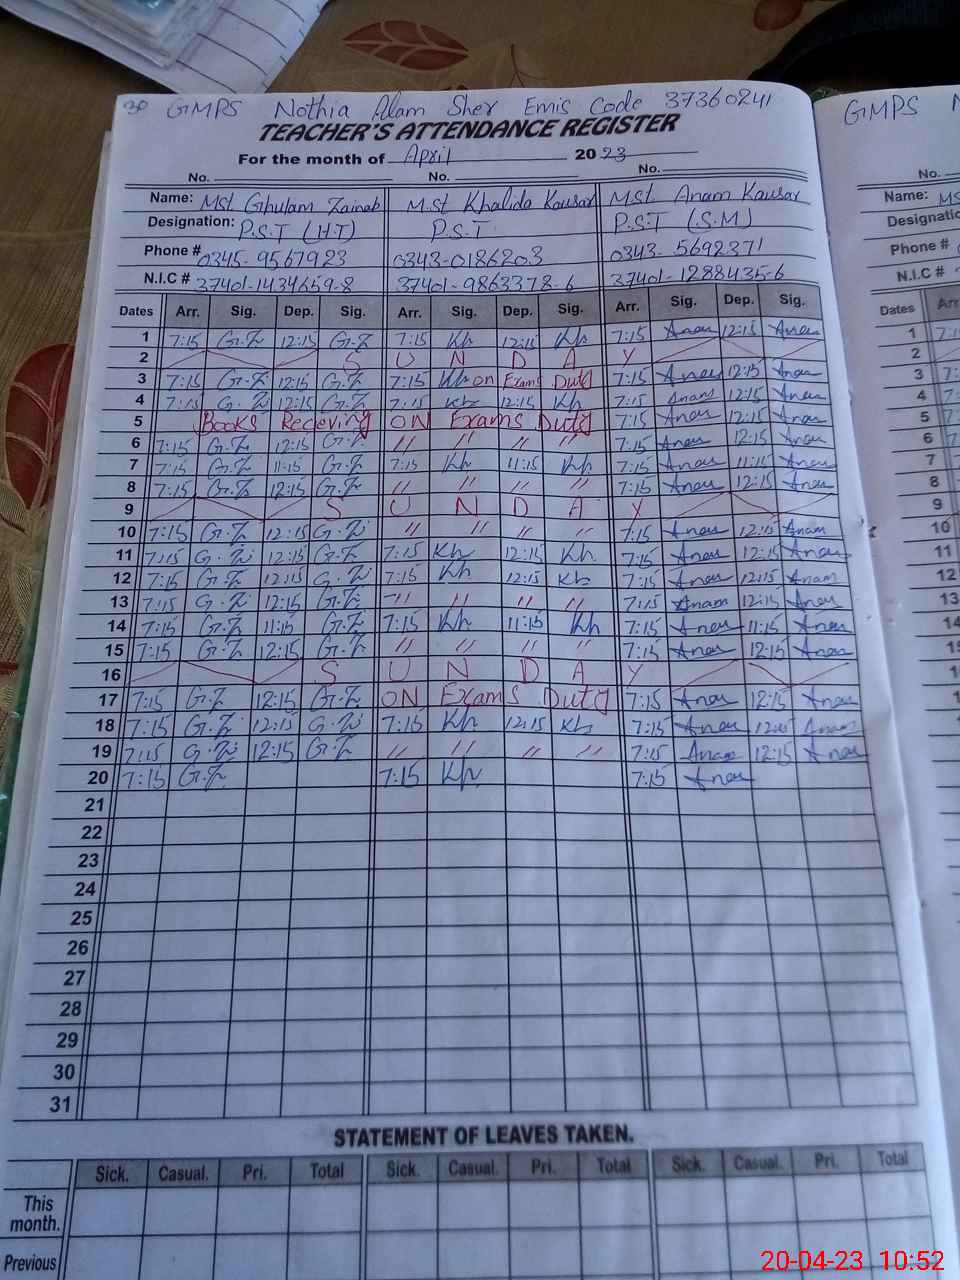 30 GMPS Nothia Alam Sher Emis Code 37360241
TEACHER'S ATTENDANCE REGISTER
For the month of April 2023
No. No. No.
Name: Mst Ghulam Zainab M.St Khalida Kausar Mst. Anam Kausar
Designation: P.S.T (H.T) P.S.T P.S.T (S.M)
Phone # 0345-9567923 0343-0186203 0343-5692371
N.I.C # 37401-1434659-8 37401-9863378-6 37401-1288435-6
Dates Arr. Sig. Dep. Sig. Arr. Sig. Dep. Sig. Arr. Sig. Dep. Sig.
1 7:15 G.Z 12:15 G.Z 7:15 Kh 12:15 Kh 7:15 Anam 12:15 Anam
2 S U N D A Y
3 7:15 G.Z 12:15 G.Z 7:15 Kh on Exams Duty 7:15 Anam 12:15 Anam
4 7:15 G.Z 12:15 G.Z 7:15 Kh 12:15 Kh 7:15 Anam 12:15 Anam
5 Books Receving ON Exams Duty 7:15 Anam 12:15 Anam
6 7:15 G.Z 12:15 G.Z " " " " 7:15 Anam 12:15 Anam
7 7:15 G.Z 11:15 G.Z 7:15 Kh 11:15 Kh 7:15 Anam 11:15 Anam
8 7:15 G.Z 12:15 G.Z " " " " 7:15 Anam 12:15 Anam
9 S U N D A Y
10 7:15 G.Z 12:15 G.Z " " " " 7:15 Anam 12:15 Anam
11 7:15 G.Z 12:15 G.Z 7:15 Kh 12:15 Kh. 7:15 Anam 12:15 Anam
12 7:15 G.Z 12:15 G.Z 7:15 Kh 12:15 Kh 7:15 Anam 12:15 Anam
13 7:15 G.Z 12:15 G.Z " " " " 7:15 Anam 12:15 Anam
14 7:15 G.Z 11:15 G.Z 7:15 Kh 11:15 Kh 7:15 Anam 11:15 Anam
15 7:15 G.Z 12:15 G.Z " " " " 7:15 Anam 12:15 Anam
16 S U N D A Y
17 7:15 G.Z 12:15 G.Z ON Exams Duty 7:15 Anam 12:15 Anam
18 7:15 G.Z 12:15 G.Z 7:15 Kh 12:15 Kh 7:15 Anam 12:15 Anam
19 7:15 G.Z 12:15 G.Z " " " " 7:15 Anam 12:15 Anam
20 7:15 G.Z 7:15 Kh 7:15 Anam
21
22
23
24
25
26
27
28
29
30
31
STATEMENT OF LEAVES TAKEN.
Sick. Casual. Pri. Total Sick. Casual. Pri. Total Sick. Casual. Pri. Total
This
month.
Previous
GMPS
No.
Name:
Designation:
Phone #
N.I.C #
Dates
1
2
3
4
5
6
7
8
9
10
11
12
13
14
20-04-23 10:52